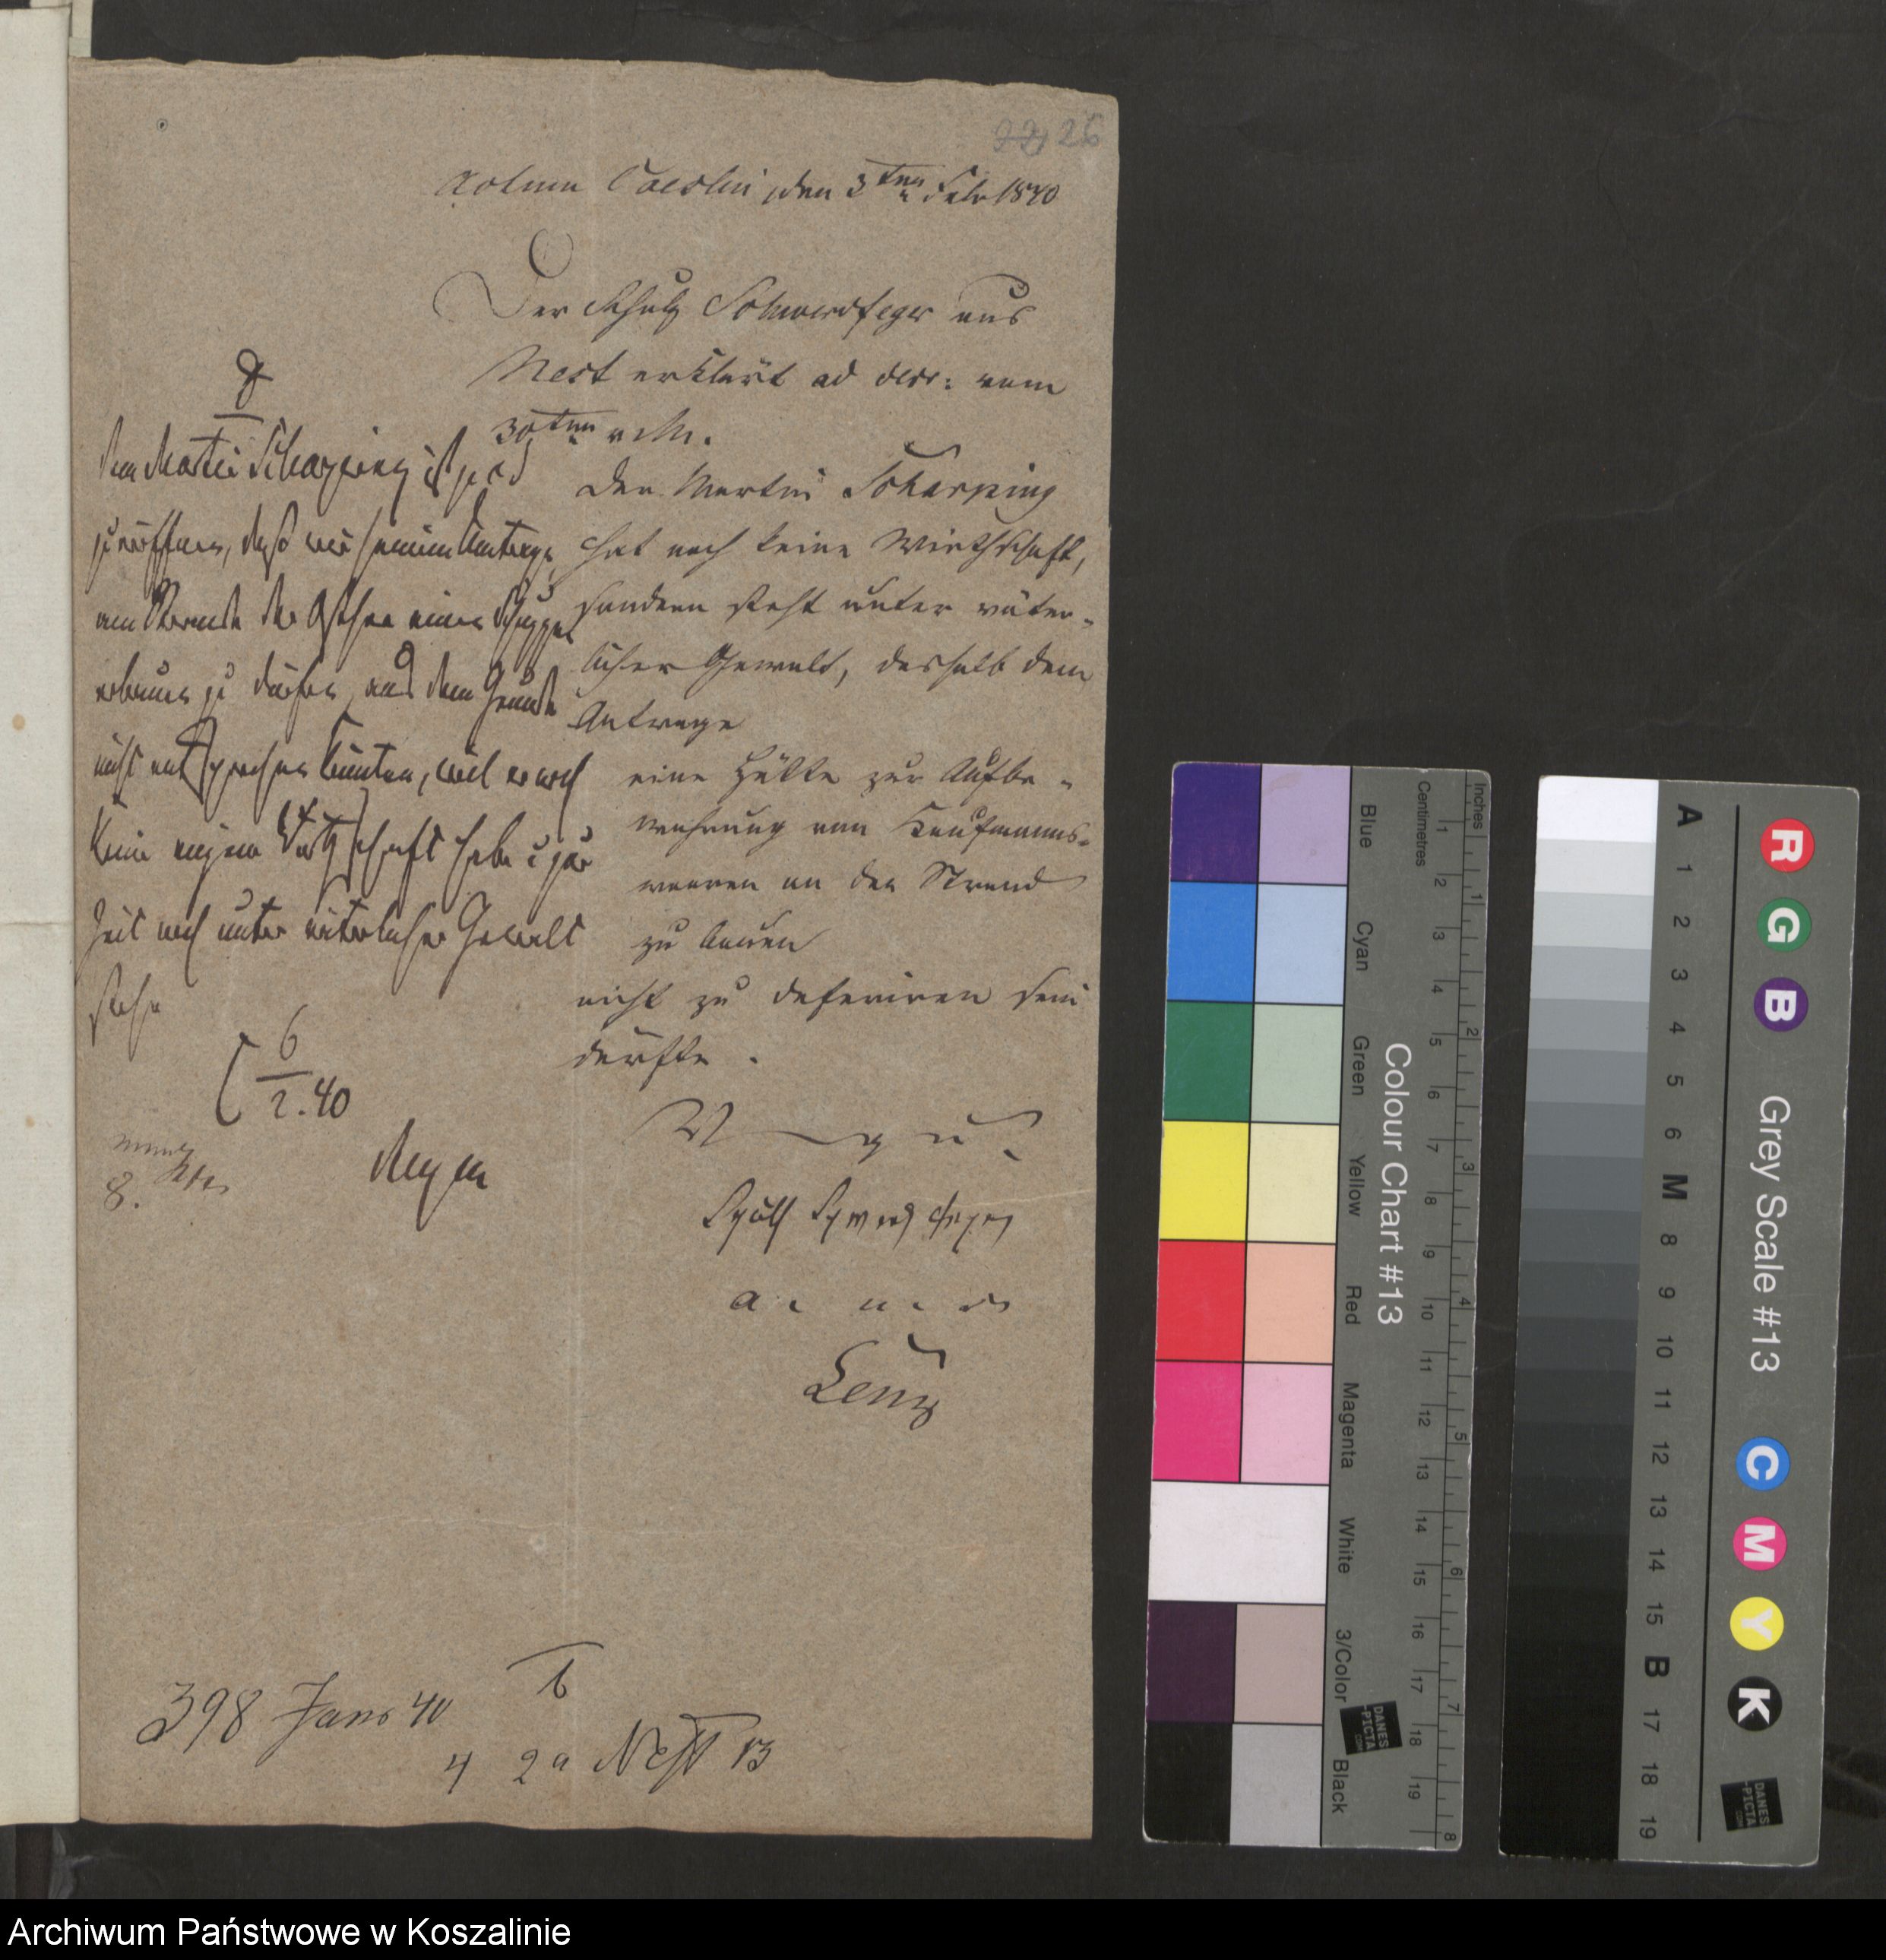 22 26
Actum Coeslin, den 3ten Febr 1840
Der Schulz Schmerdfeger aus
Nest erklärt ad decr: vom
30ten v. M.
Der Martin Scharping
hat noch keine Wirthschaft,
sondern steht unter väter-
licher Gewalt, deshalb dem
Antrage
eine Hütte zur Aufbe-
wahrung von Kaufmanns-
waaren an den Strand
zu bauen
nicht zu deferiren sein
dürfte.
V. g. u.
Schulz
a. u. s.
Lenz
Dem Martin Scharping ist
zu eröffnen, daß wir seinem Antrage,
am Strande der Ostsee einen Schuppen
erbauen zu dürfen, aus dem Grunde
nicht entsprechen könnten, weil er noch
keine eigene Wirthschaft habe u zur
Zeit noch unter väterlicher Gewalt
stehe
C 6/2.40
8.
398 Janr 40
b
4 2a Nest 13
Blue
Cyan
Green
Yellow
Red
Magenta
White
3/Color
Black
Colour Chart #13
Centimetres
1 2 3 4 5 6 7 8 9 10 11 12 13 14 15 16 17 18 19
Inches
1 2 3 4 5 6 7 8
DANES
-PICTA
.COM
A 1 2 3 4 5 6 M 8 9 10 11 12 13 14 15 B 17 18 19
R G B
Grey Scale #13
C M Y K
DANES
-PICTA
.COM
Archiwum Państwowe w Koszalinie